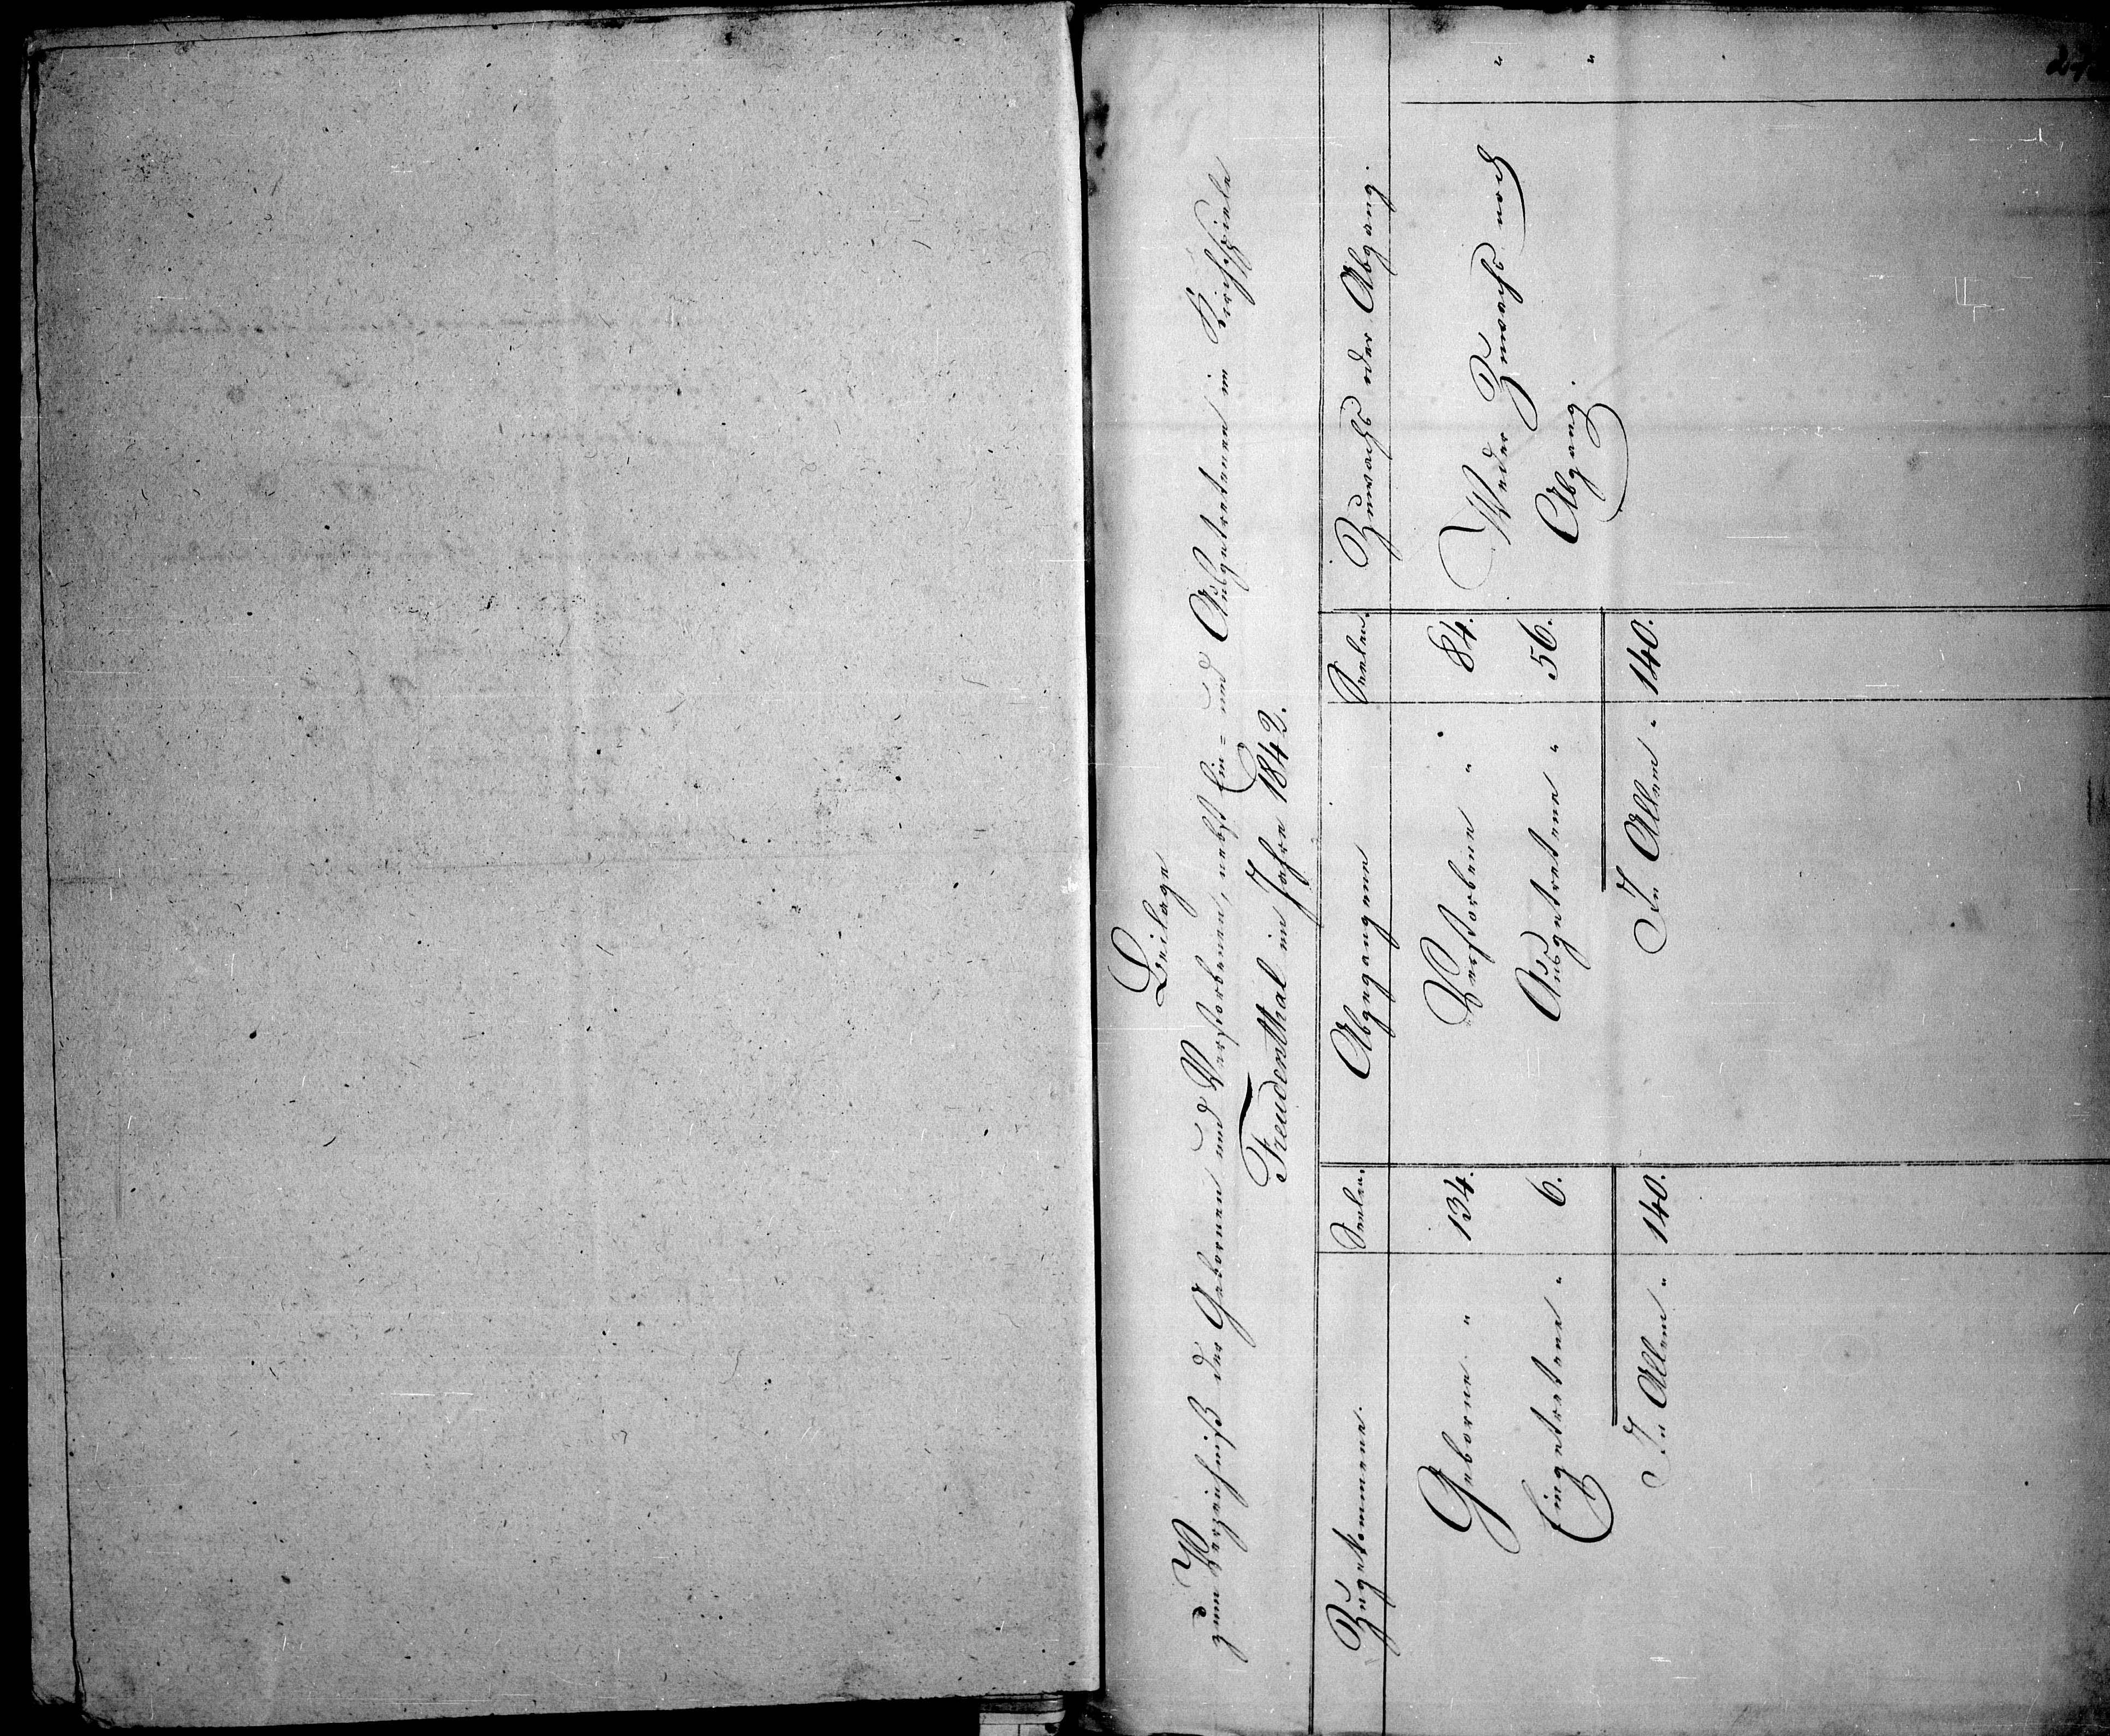 Beilage
zum Verzeichniß der Gebornen und Verstorbenen, nebst Ein- und Ausgetretenen im Kirchspiele
Freudenthal im Jahre 1842.
Zugekommene. Seelen. Abgegangene Seelen. Zuwachs oder Abgang.
Geborne " 134. Verstorbene " 84. Weder Zuwachs noch "
Eingetretene " 6. Ausgetretene " 56. Abgang. "
In Allem " 140. In Allem " 140.